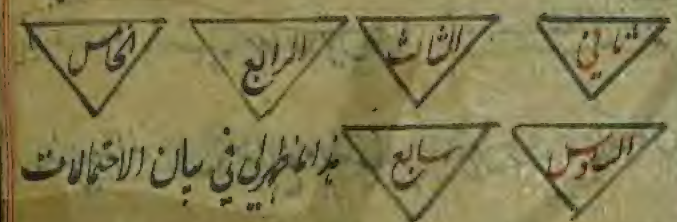 ثاني الثالث الرابع الخامس
السادس سابع هذا ما ظهر لي في بيان الاحتمالات